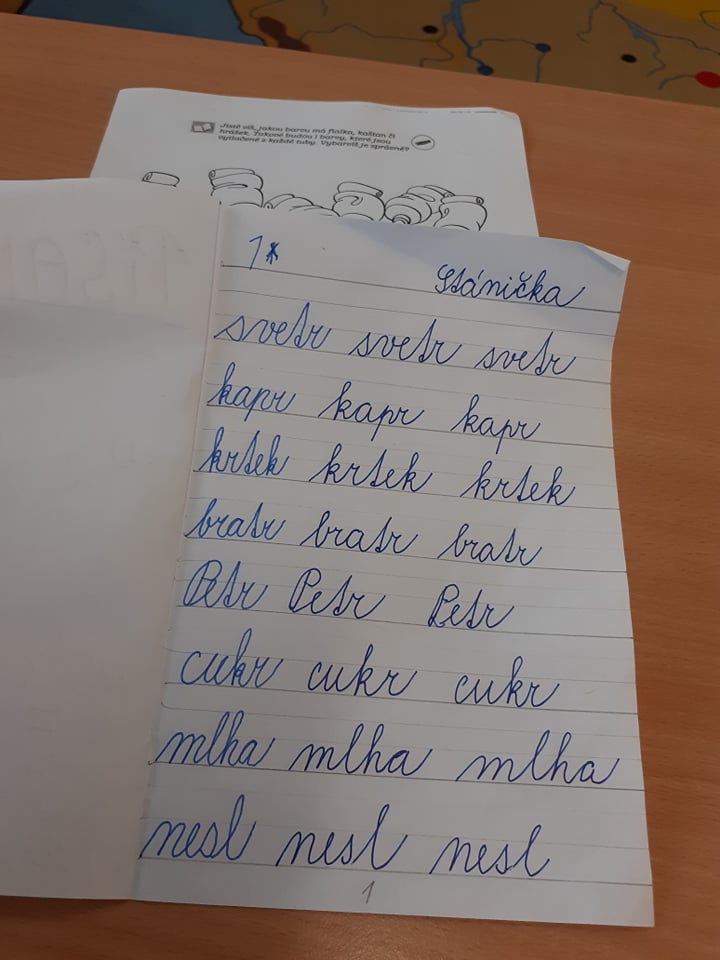 Jistě víš, jakou barvu má fialka, kaštan či
hrášek. Takové budou i barvy, které jsou
vytlačené z každé tuby. Vybarvíš je správně?
1*
Stánička
svetr svetr svetr
kapr kapr kapr
krtek krtek krtek
bratr bratr bratr
Petr Petr Petr
cukr cukr cukr
mlha mlha mlha
nesl nesl nesl
1